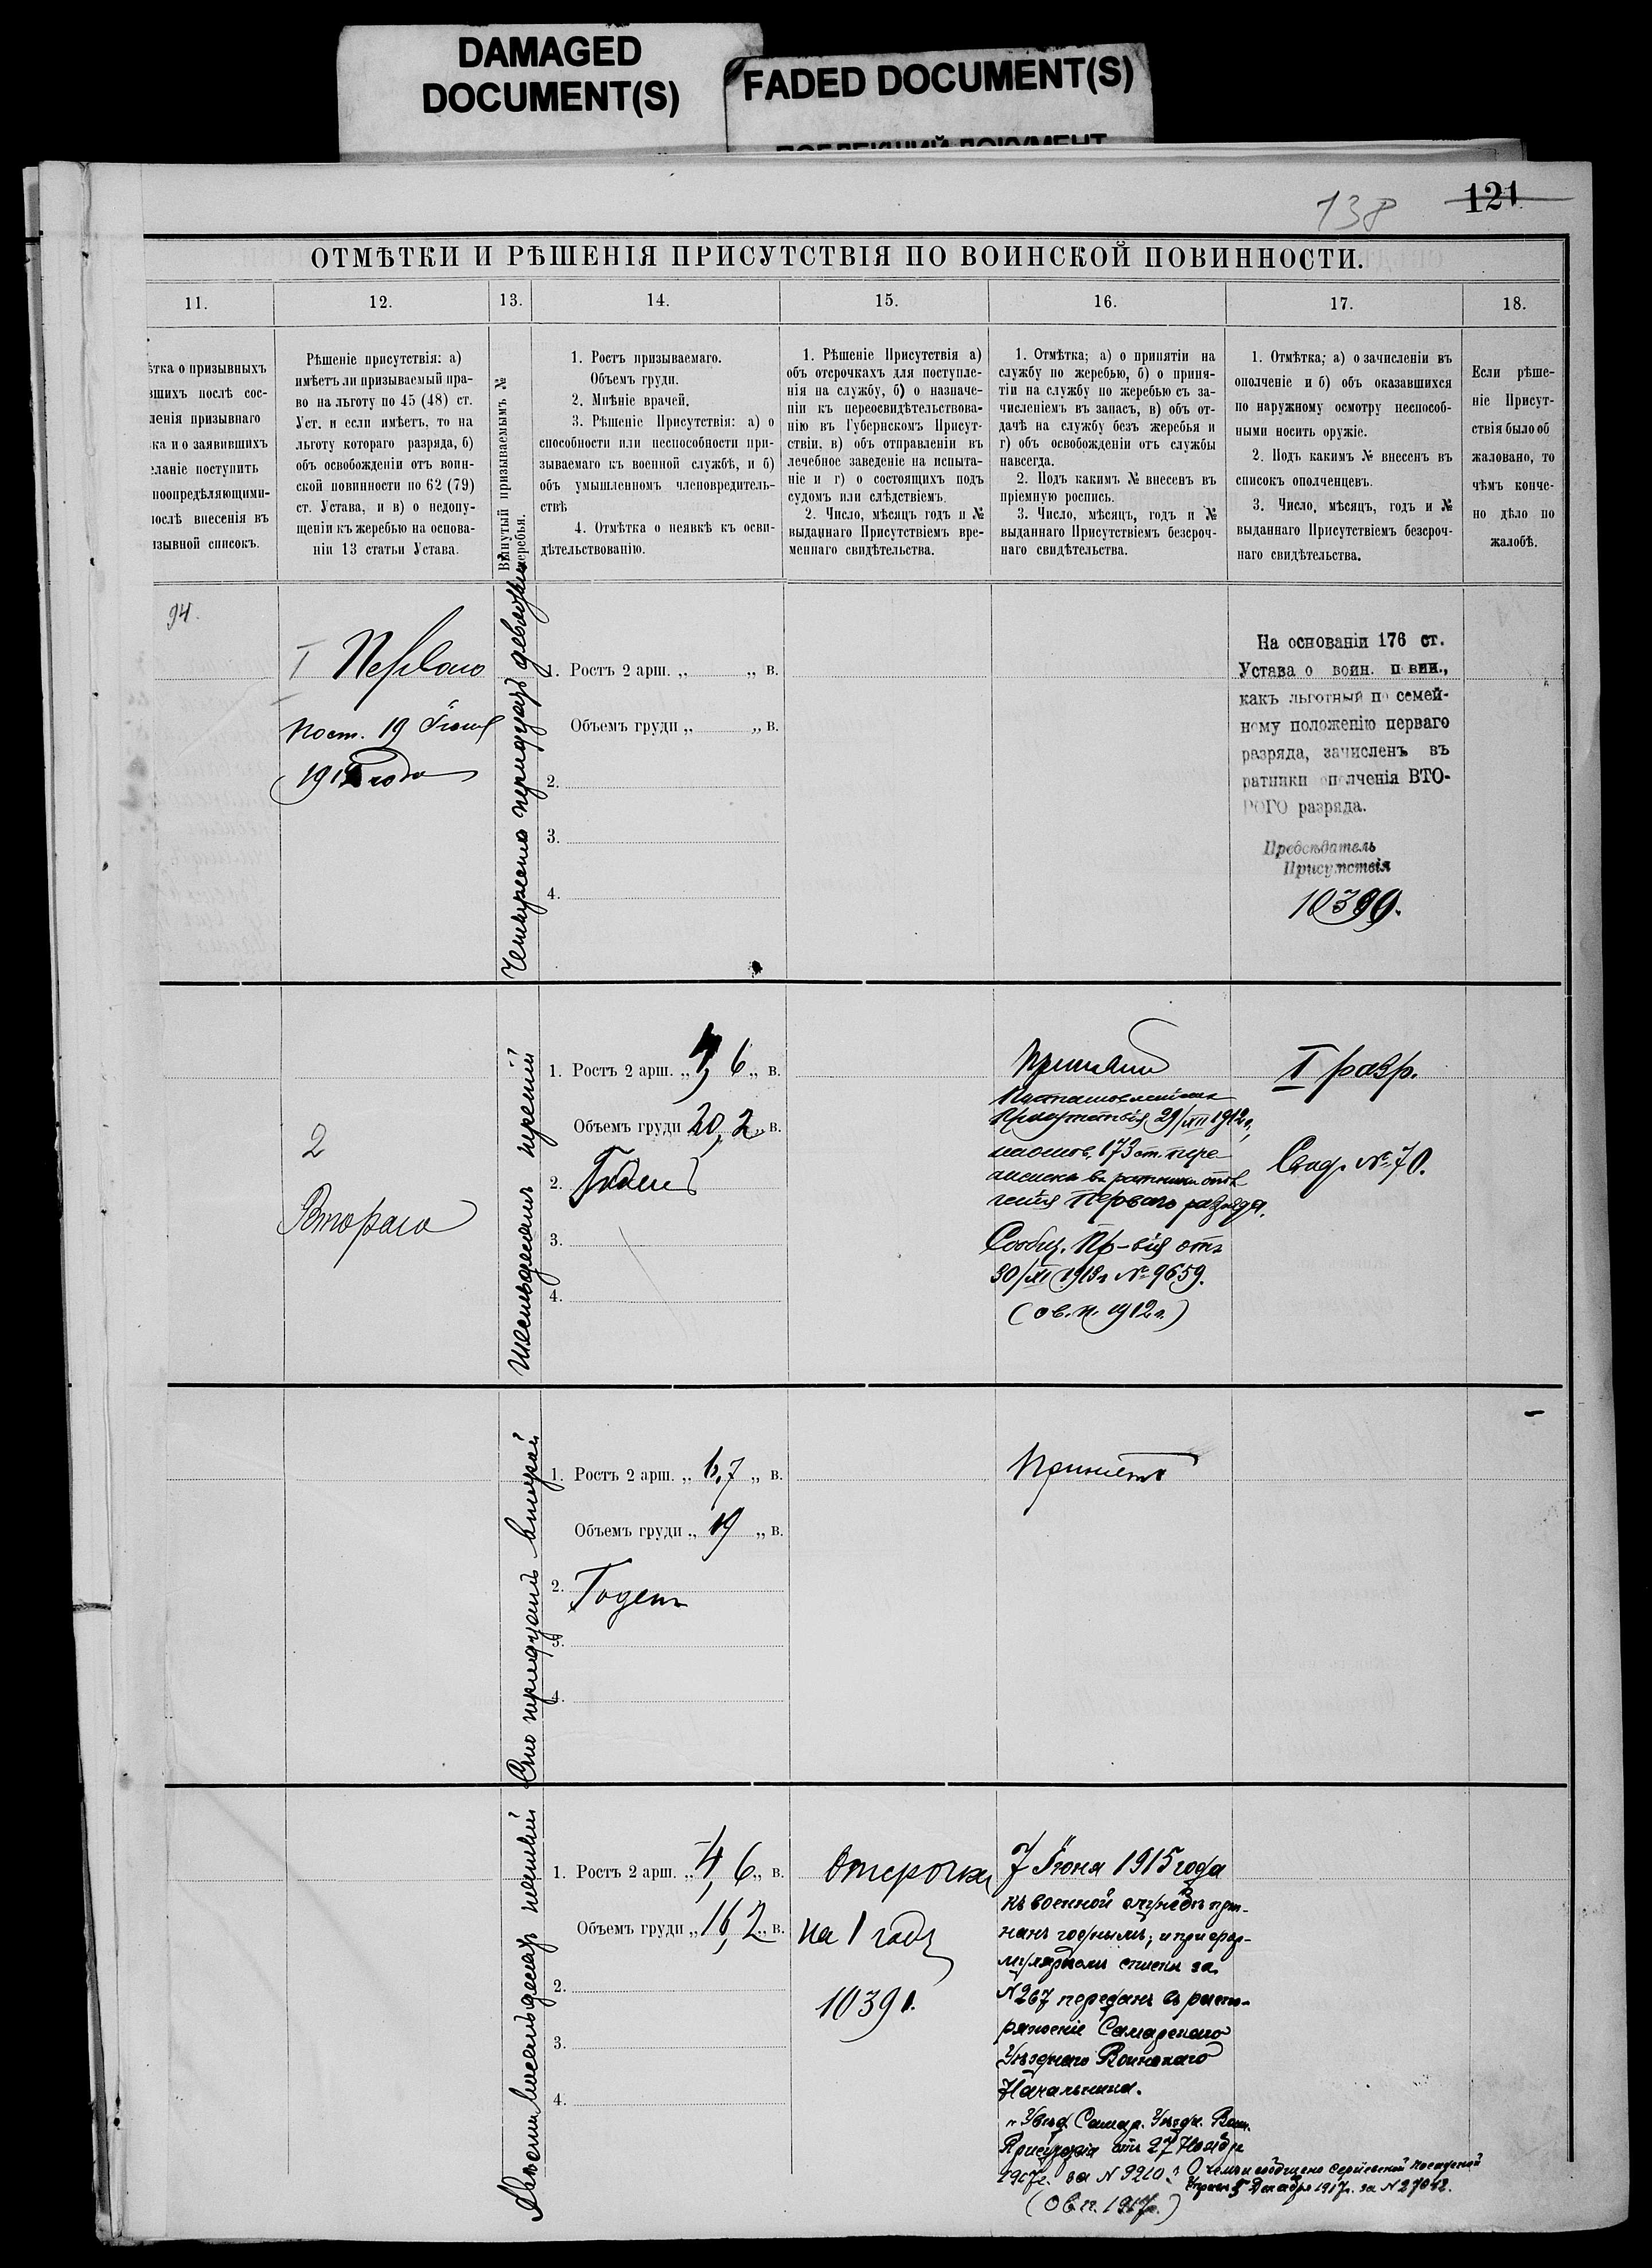 DAMAGED
DOCUMENT(S)
FADED DOCUMENT(S)
138
121
ОТМѢТКИ И РѢШЕНІЯ ПРИСУТСТВІЯ ПО ВОИНСКОЙ ПОВИННОСТИ.
11.
12.
13.
14.
15.
16.
17.
18.
ѣтка о призывныхъ
вшихъ послѣ сос-
ленія призывнаго
ка и о заявившихъ
еланіе поступить
ноопредѣляющими-
послѣ внесенія въ
изывной списокъ.
Рѣшеніе присутствія: а)
имѣетъ ли призываемый пра-
во на льготу по 45 (48) ст.
Уст. и если имѣетъ, то на
льготу котораго разряда, б)
объ освобожденіи отъ воин-
ской повинности по 62 (79)
ст. Устава, и в) о недопу-
щеніи къ жеребью на основа-
ніи 13 статьи Устава.
Вынутый призываемымъ №
жеребья.
1. Ростъ призываемаго.
Объемъ груди.
2. Мнѣніе врачей.
3. Рѣшеніе Присутствія: а) о
способности или неспособности при-
зываемаго къ военной службѣ, и б)
объ умышленномъ членовредитель-
ствѣ
4. Отмѣтка о неявкѣ къ осви-
дѣтельствованію.
1. Рѣшеніе Присутствія а)
объ отсрочкахъ для поступле-
нія на службу, б) о назначе-
ніи къ переосвидѣтельствова-
нію въ Губернскомъ Присут-
ствіи, в) объ отправленіи въ
лечебное заведеніе на испыта-
ніе и г) о состоящихъ подъ
судомъ или слѣдствіемъ.
2. Число, мѣсяцъ годъ и №
выданнаго Присутствіемъ вре-
меннаго свидѣтельства.
1. Отмѣтка; а) о принятіи на
службу по жеребью, б) о приня-
тіи на службу по жеребью съ за-
численіемъ въ запасъ, в) объ от-
дачѣ на службу безъ жеребья и
г) объ освобожденіи отъ службы
навсегда.
2. Подъ какимъ № внесенъ въ
пріемную роспись.
3. Число, мѣсяцъ, годъ и №
выданнаго Присутствіемъ безсроч-
наго свидѣтельства.
1. Отмѣтка; а) о зачисленіи въ
ополченіе и б) объ оказавшихся
по наружному осмотру неспособ-
ными носить оружіе.
2. Подъ какимъ № внесенъ въ
списокъ ополченцевъ.
3. Число, мѣсяцъ, годъ и №
выданнаго Присутствіемъ безсроч-
наго свидѣтельства.
Если рѣше-
ніе Присут-
ствія было об
жаловано, то
чѣмъ конче-
но дѣло по
жалобѣ.
94.
I Перваго
пост. 19 Іюня
1912 года
Четыреста тридцать девятый
1. Ростъ 2 арш. „ „ в.
Объемъ груди „ „ в.
2.
3.
4.
На основаніи 176 ст.
Устава о воин. повин.,
какъ льготный по семей-
ному положенію перваго
разряда, зачисленъ въ
ратники ополченія ВТО-
РОГО разряда.
Предсѣдатель
Присутствія
10399.
2
Второго
Шестьдесятъ третій
1. Ростъ 2 арш. „ 4, 6 „ в.
Объемъ груди 20, 2 „ в.
2. Годенъ
3.
4.
Принятъ
Постановленіемъ
Присутствія 29/XII 1912 г,
на основ. 173 ст. пере-
численъ въ ратники опол
ченія Перваго разряда.
Сообщ. Пр-вія отъ
30/XI 1913 г № 9659.
(ов. п. 1912 г.)
I разр.
Свид. № 70.
Сто тридцать второй
1. Ростъ 2 арш. „ 6,7 „ в.
Объемъ груди „ 19 „ в.
2. Годенъ
3.
4.
Принятъ
Двѣсти восемьдесятъ
1. Ростъ 2 арш. „ 4, 6 „ в.
Объемъ груди „ 16, 2 „ в.
2.
3.
4.
Отсрочка
на 1 годъ
10391.
7 Іюня 1915 года
къ военной службѣ приз-
нанъ годнымъ, и при фор-
мулярномъ списки за
№ 267 переданъ въ распо-
ряженіе Самарскаго
Уѣзднаго Воинскаго
Начальника.
Увѣд. Самар. Уѣздн. Воин.
Присутствія отъ 27 Ноября
1917 г. за № 9210. О чемъ и сообщено Сергіевской посадской
Управѣ 5 Декабря 1917 г. за № 27042.
(Ов п. 1917 г.)